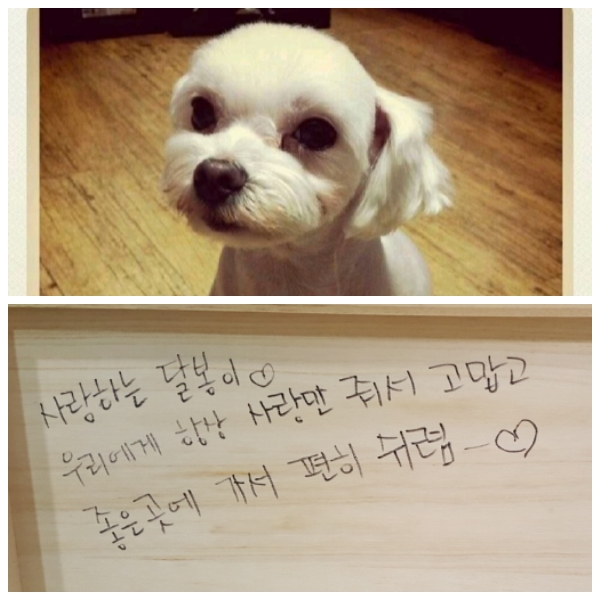 사랑하는 달봉이♡
우리에게 항상 사랑만 줘서 고맙고
좋은곳에 가서 편히 쉬렴-♡